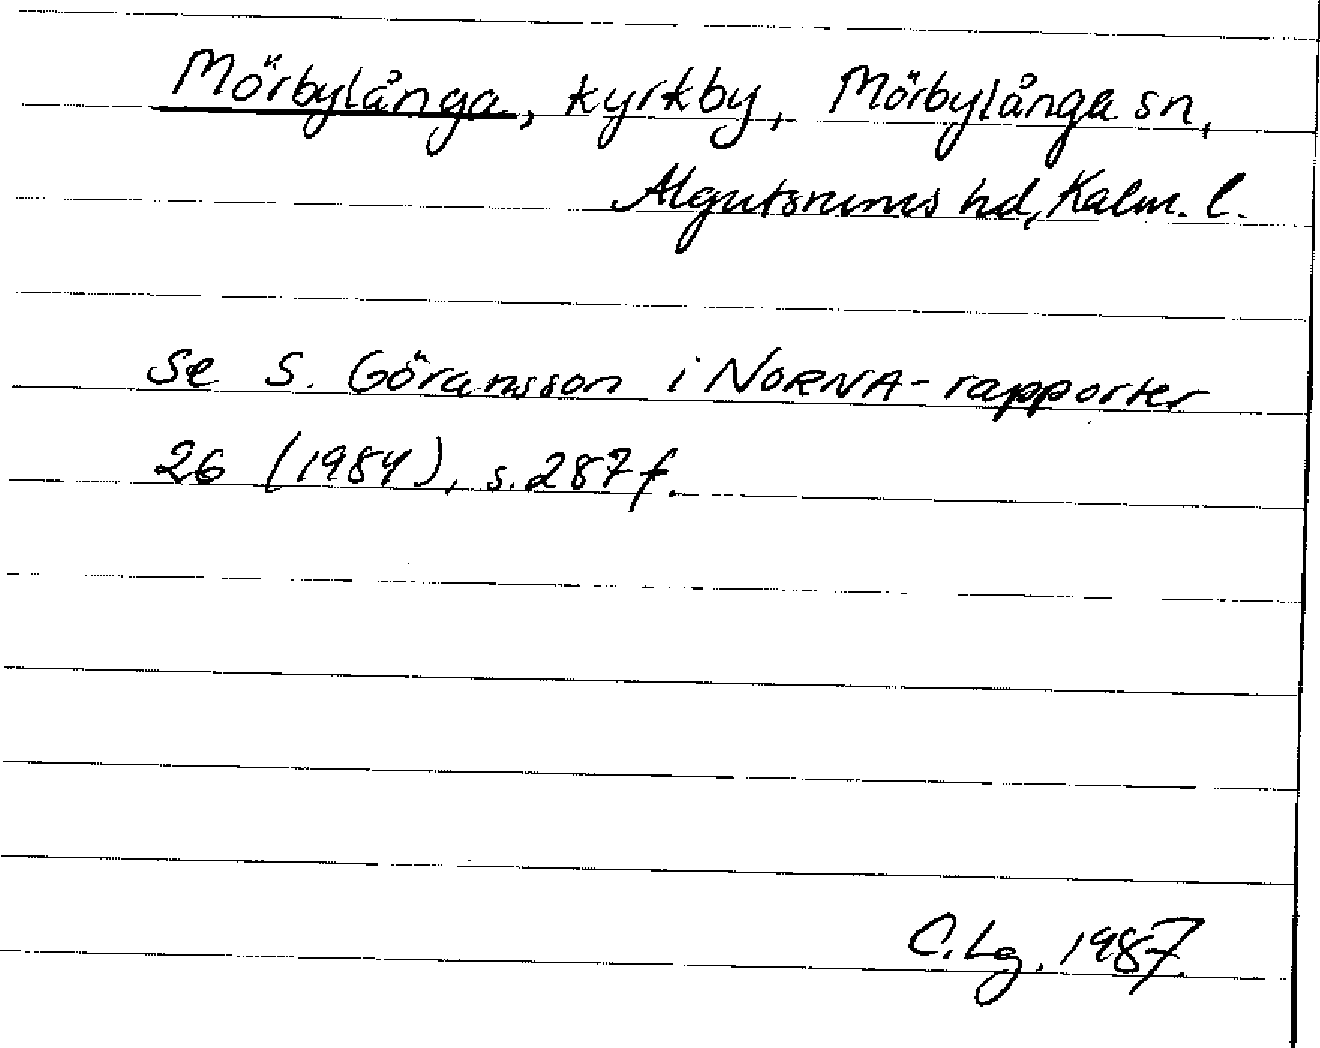 Mörbylånga, kyrkby, Mörbylånga sn,
Algutsrums hd, Kalm. l.
Se S. Göransson i NORNA-rapporter
26 (1984), s. 287 f.
C. Lg. 1987